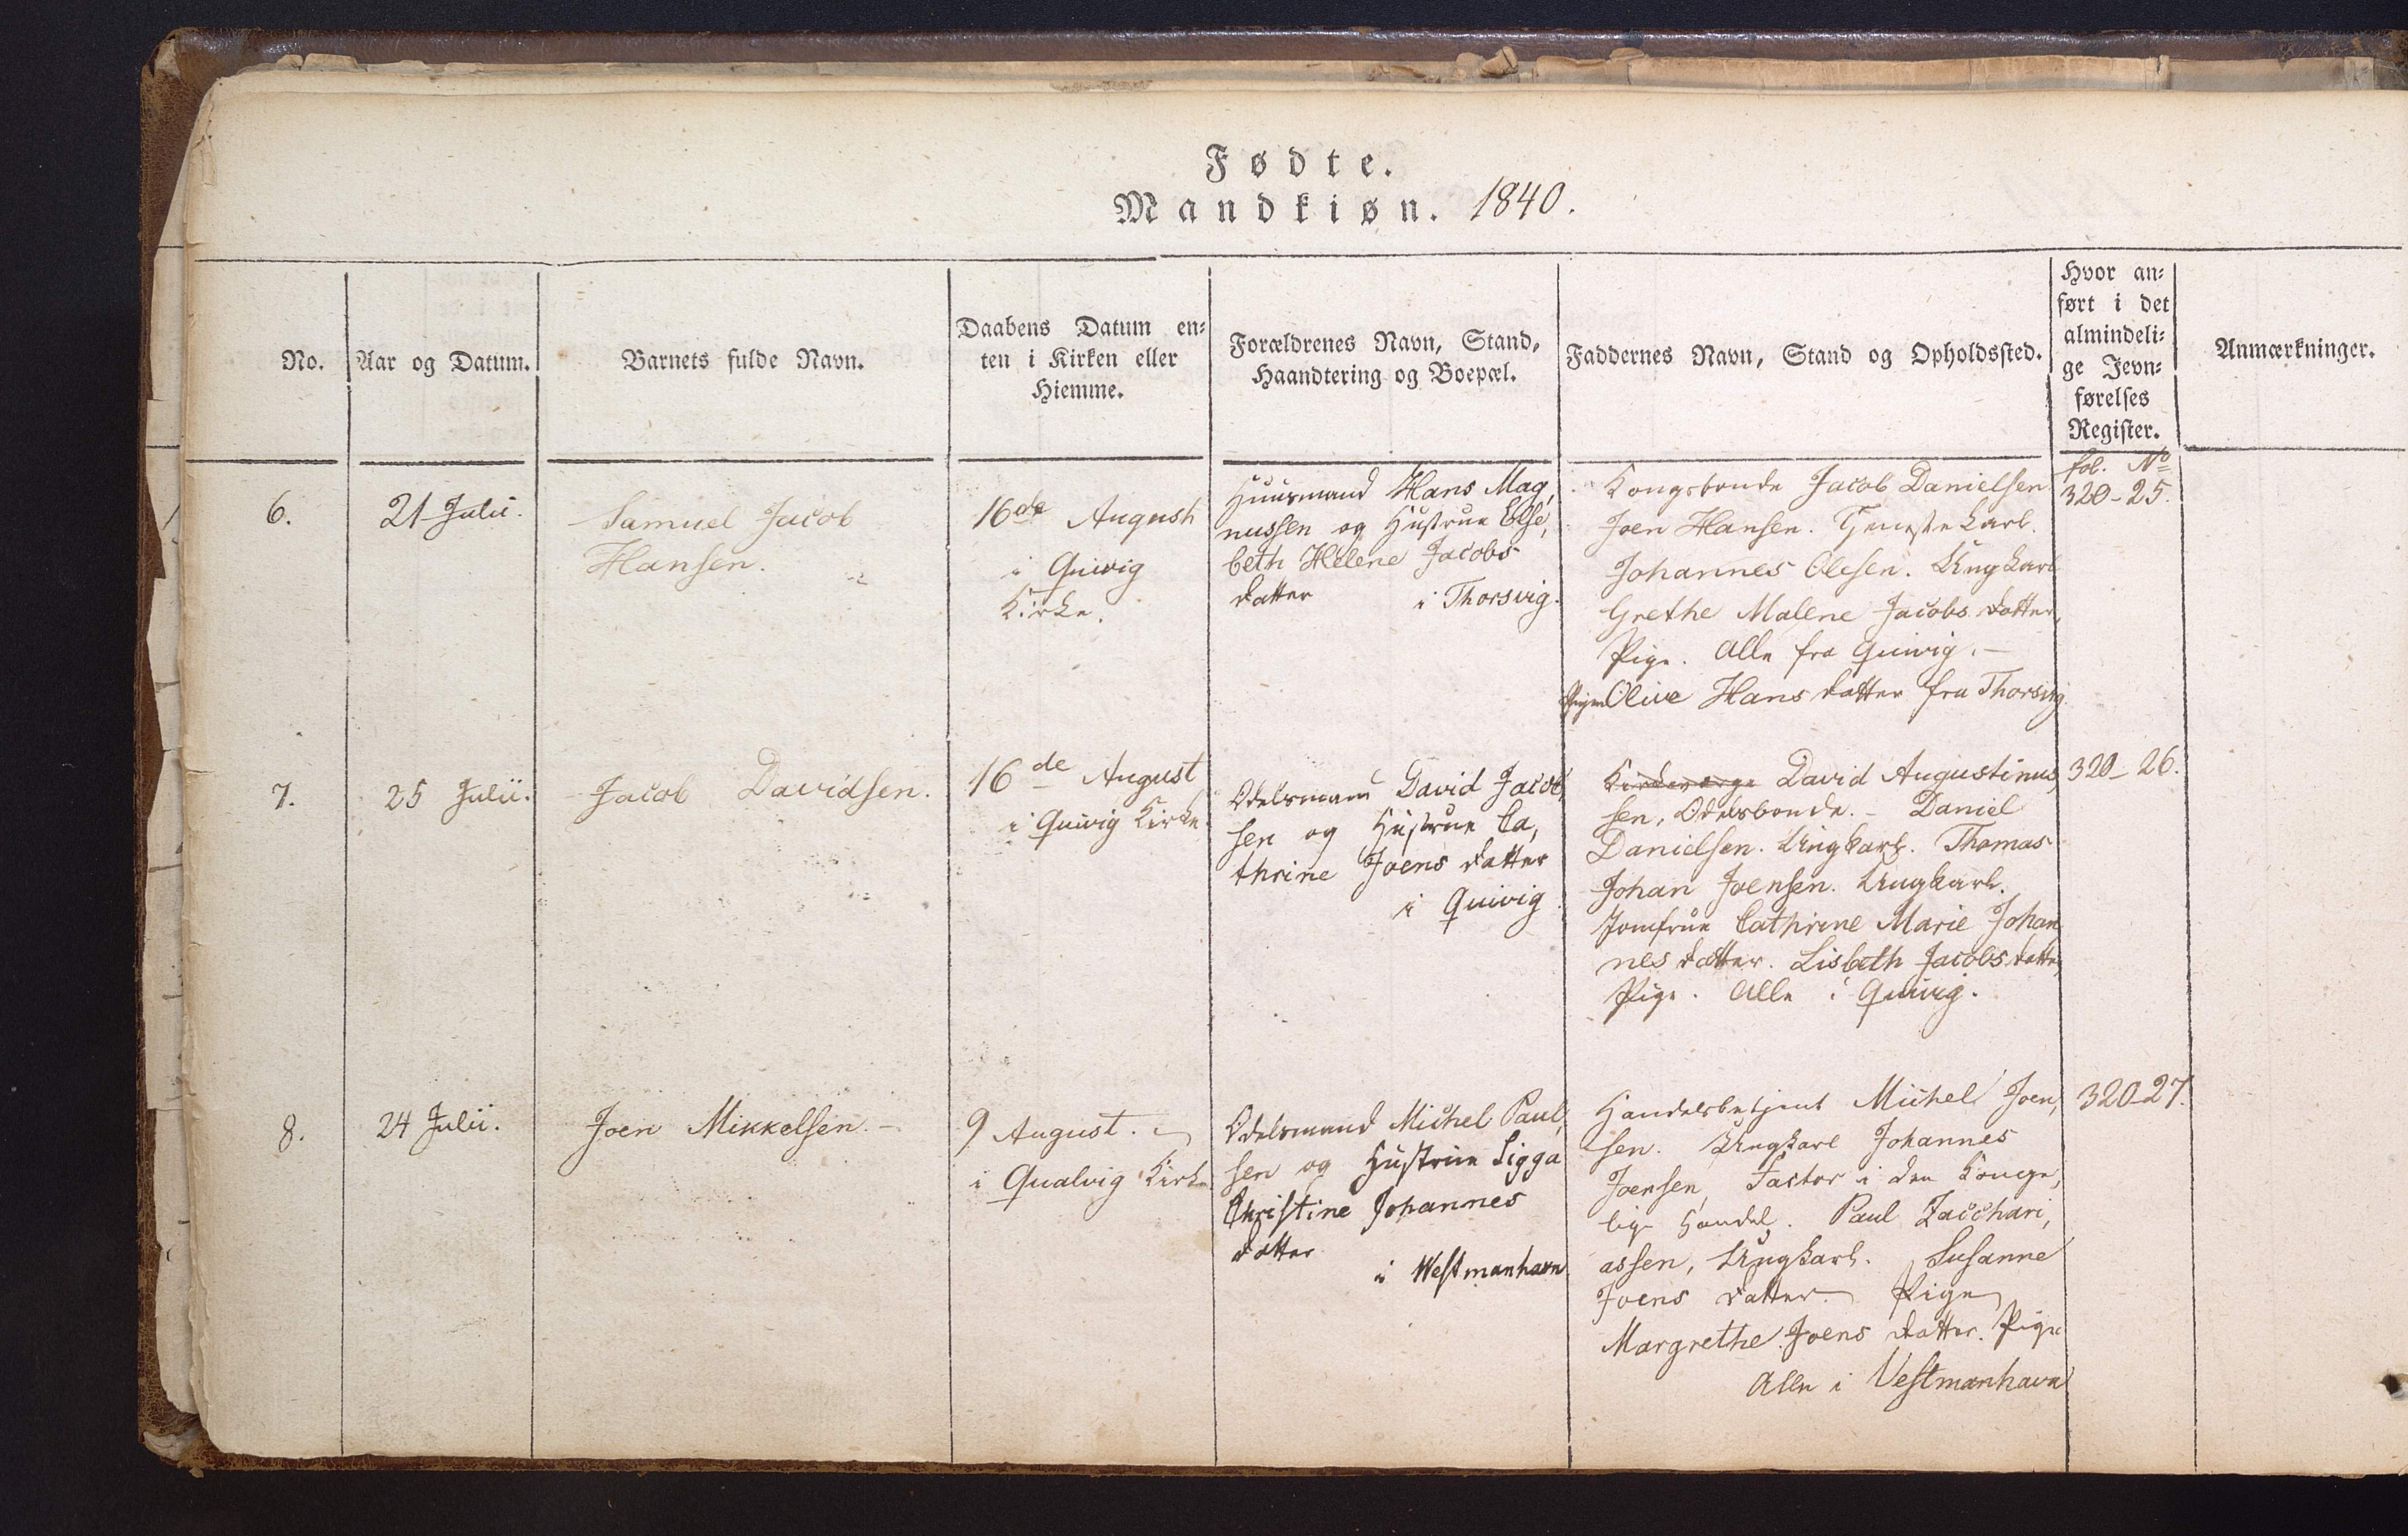 Fødte.
Mandkiøn. 1840.
No.
Aar og Datum.
Barnets fulde Navn.
Daabens Datum en-
ten i Kirken eller
Hiemme.
Forældrenes Navn, Stand,
Haandtering og Boepæl.
Faddernes Navn, Stand og Opholdssted.
Hvor an-
ført i det
almindeli-
ge Jevn-
førelses
Register.
Anmærkninger.
6.
21 Julii.
Samuel Jacob
Hansen.
16de August
i Quivig
Kirke.
Huusmand Hans Mag,
nussen og Hustrue Else,
beth Helene Jacobs
datter i Thorsvig.
Kongsbonde Jacob Danielsen
Joen Hansen. Tjenestekarl.
Johannes Olesen. Ungkarl
Grethe Malene Jacobs datter,
Pige. Alle fra Quivig. –
Pigen Olive Hans datter fra Thorsvig
fol. No
320-25.
7.
25 Julii.
Jacob Davidsen.
16de August
i Quivig Kirke.
Odelsmand David Jacob,
sen og Hustrue Ca,
thrine Joens datter
i Quivig
Kirkeværge David Augustinus,
sen, Odelsbonde. – Daniel
Danielsen. Ungkarl. Thomas
Johan Joensen. Ungkarl.
Jomfrue Cathrine Marie Johan
nes datter. Lisbeth Jacobs datter,
Pige. Alle i Quivig.
320-26.
8.
24 Julii.
Joen Mikkelsen. –
9 August.
i Qualvig Kirke
Odelsmand Michel Paul,
sen og Hustrue Sigga
Christine Johannes
datter
i Westmanhavn
Handelsbetjent Michel Joen,
sen. Ungkarl Johannes
Joensen, Factor i den Konge,
lige Handel. Paul Zacchari,
assen, Ungkarl. Susanne
Joens datter Pige
Margrethe Joens datter. Pige
Alle i Vestmanhavn
320-27.